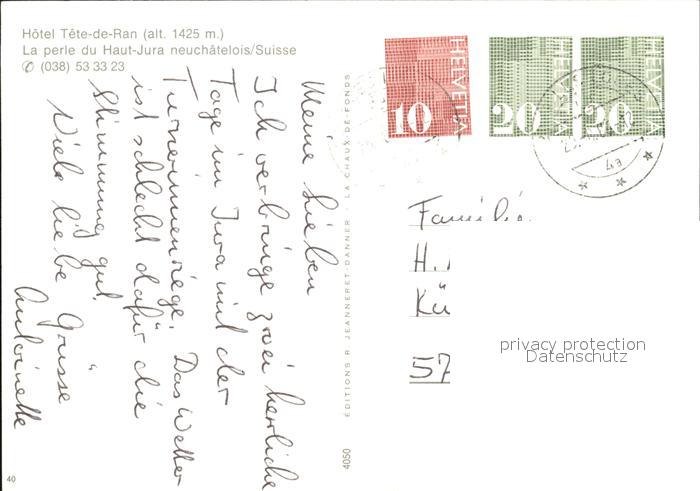 Hôtel Tête-de-Ran (alt. 1425 m.)
La perle du Haut-Jura neuchâtelois/Suisse
✆ (038) 53 33 23
Meine Lieben
Ich verbringe zwei herrliche
Tage im Jura mit der
Turnerinnenriege. Das Wetter
ist schlecht dafür die
Stimmung gut.
Viele liebe Grüsse
Antoinette
40
4050
ÉDITIONS R. JEANNERET DANNER - LA CHAUX-DE-FONDS
HELVETIA 10
HELVETIA 20
HELVETIA 20
Familie
H.
Kü
57
privacy protection
Datenschutz